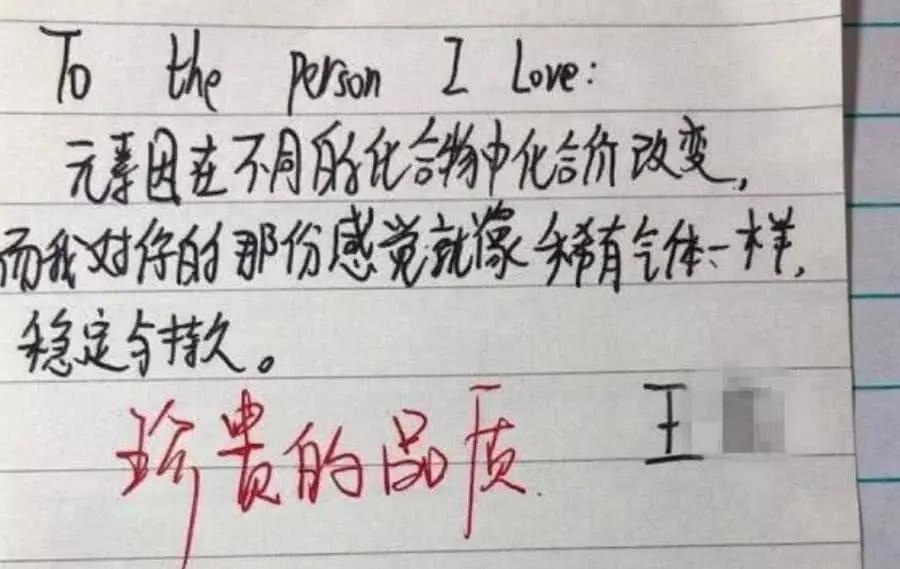 To the person I Love:
元素因在不同的化合物中化合价改变,
而我对你的那份感觉就像稀有气体一样,
稳定与持久。
珍贵的品质.
王